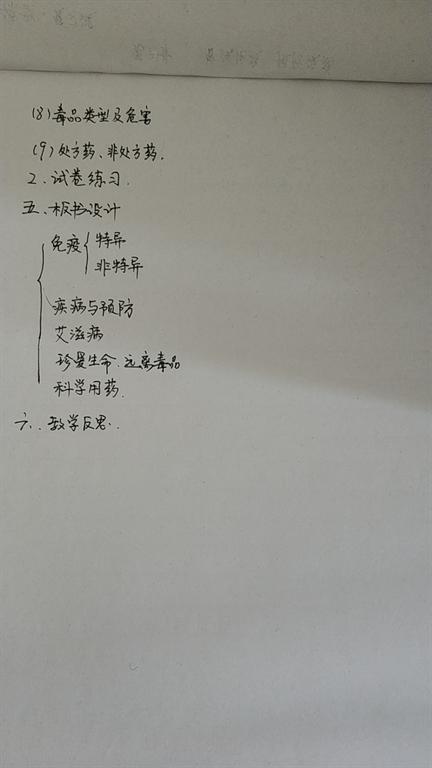 (8)毒品类型及危害
(9)处方药、非处方药.
2.试卷练习.
五、板书设计
免疫{特异
非特异
疾病与预防
艾滋病
珍爱生命.远离毒品
科学用药.
六、教学反思.